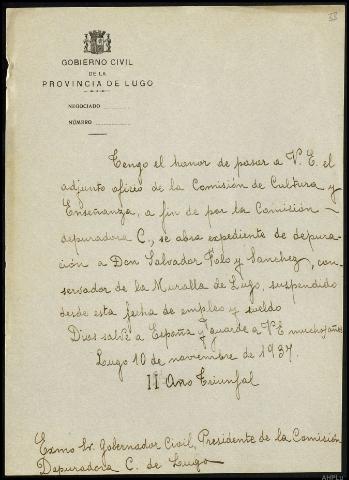 53
GOBIERNO CIVIL
DE LA
PROVINCIA DE LUGO
NEGOCIADO
NÚMERO
Tengo el honor de pasar a V. E. el
adjunto oficio de la Comisión de Cultura y
Enseñanza, a fin de por la Comisión
depuradora C., se abra expediente de depura-
ción a Don Salvador Polo y Sanchez, con-
servador de la Muralla de Lugo, suspendido
desde esta fecha de empleo y sueldo
Dios salve a España y guarde a V E muchos años
Lugo 10 de noviembre de 1937.
II Año Triunfal
Exmo Sr. Gobernador Civil, Presidente de la Comisión
Depuradora C. de Lugo
AHPLu